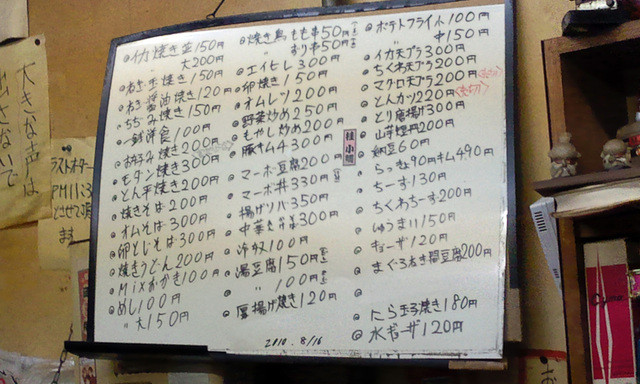 イカ焼き 並150円
大200円
ねぎ焼き150円
ねぎ醤油焼き120円
ちぢみ焼き150円
一銭洋食100円
お好み焼き200円
モダン焼き300円
とん平焼き200円
焼きそば200円
オムそば300円
卵とじそば300円
焼きうどん200円
Mixおかき100円
めし100円
〃大150円
焼き鳥もも串50円
〃 ずり串50円
エイヒレ300円
卵焼き150円
オムレツ200円
野菜炒め250円
もやし炒め200円
豚キムチ300円
マーボ豆腐200円
マーボ丼330円
揚げソバ350円
中華丼300円
冷奴100円
湯豆腐150円
〃 100円
厚揚げ焼き120円
ポテトフライ小100円
〃 中150円
イカ天プラ300円
ちくわ天プラ200円
マグロ天プラ200円
とんカツ220円
とり唐揚げ300円
山芋短冊200円
納豆60円
らっきょ90円キムチ90円
ちーず130円
ちくわちーず200円
しゅうまい150円
ギョーザ120円
まぐろ油揚豆腐200円
たら玉子焼き180円
水ギョーザ120円
2010. 8/16
大きな声は
出さないで
ラストオーダー
PM11:30
とさせて頂
ます